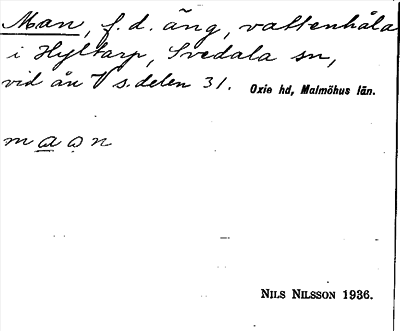 Man, f. d. äng, vattenhåla
i Hyltarp, Svedala sn,
vid ån V s. delen 31. Oxie hd, Malmöhus län.
maan
NILS NILSSON 1936.